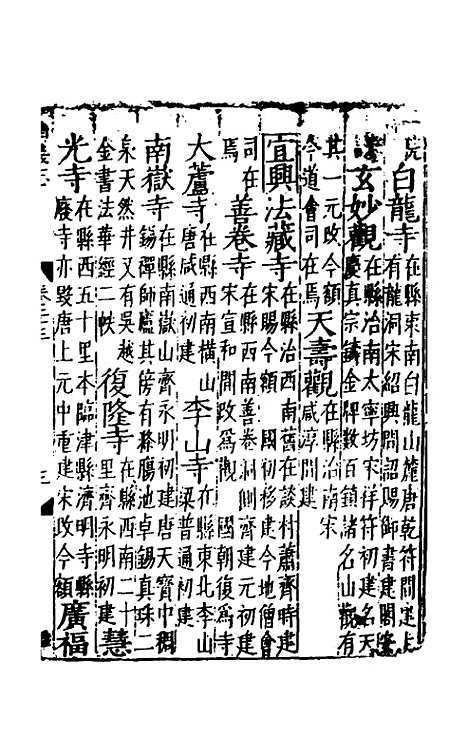 院白龍寺在縣東南白龍山麓唐乾符間建上
有龍洞宋紹興間詔賜御書建閣
玄妙觀在縣治南太寧坊宋祥符初建名天
慶真宗鑄金牌數百鎮諸名山觀有
其一元改今額天壽觀在縣治南宋
今道會司在焉咸淳間建
宜興法藏寺在縣治西南舊在談村蕭齊時建
宋賜今額國初移建今地僧會
司在焉善卷寺在縣西南善卷洞側齊建元初建
宋宣和間改為觀國朝復為寺
大蘆寺在縣西南橫山李山寺在縣東北李山
唐咸通初建梁普通初建
南嶽寺在縣南嶽山齊永明初建唐天寶中稠
錫禪師廬其傍有緜腸池卓錫真珠二
泉天然井又有吳越復隆寺在縣西南二十
金書法華經二帙里齊永明初建慧
光寺在縣西五十里本臨津縣濟明寺縣
廢寺亦毀唐上元中重建宋改今額廣福
卷二三
三